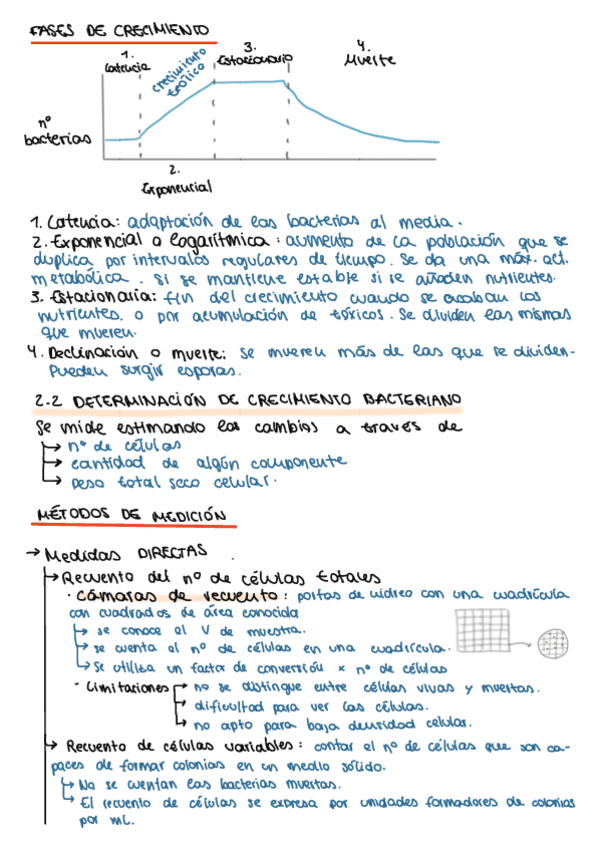 FASES DE CRECIMIENTO
1. Latencia
crecimiento teórico
3. Estacionario
4. Muerte
nº bacterias
2. Exponencial
1. Latencia: adaptación de las bacterias al medio.
2. Exponencial o logarítmica: aumento de la población que se
duplica por intervalos regulares de tiempo. Se da una máx. act.
metabólica. Si se mantiene estable si se añaden nutrientes.
3. Estacionaria: fin del crecimiento cuando se acaban los
nutrientes. o por acumulación de tóxicos. Se dividen las mismas
que mueren.
4. Declinación o muerte: se mueren más de las que se dividen.
Pueden surgir esporas.
2.2 DETERMINACIÓN DE CRECIMIENTO BACTERIANO
Se mide estimando los cambios a través de
→ nº de células
→ cantidad de algún componente
→ peso total seco celular.
MÉTODOS DE MEDICIÓN
→ Medidas DIRECTAS
→ Recuento del nº de células totales
· cámaras de recuento: portas de vidreo con una cuadrícula
con cuadrados de área conocida
→ se conoce el V de muestra.
→ se cuenta el nº de células en una cuadrícula.
→ Se utiliza un factor de conversión x nº de células
· Limitaciones → no se distingue entre células vivas y muertas.
→ dificultad para ver las células.
→ no apto para baja densidad celular.
→ Recuento de células variables: contar el nº de células que son ca-
paces de formar colonias en un medio sólido.
→ No se cuentan las bacterias muertas.
→ El recuento de células se expresa por unidades formadores de colonias
por mL.